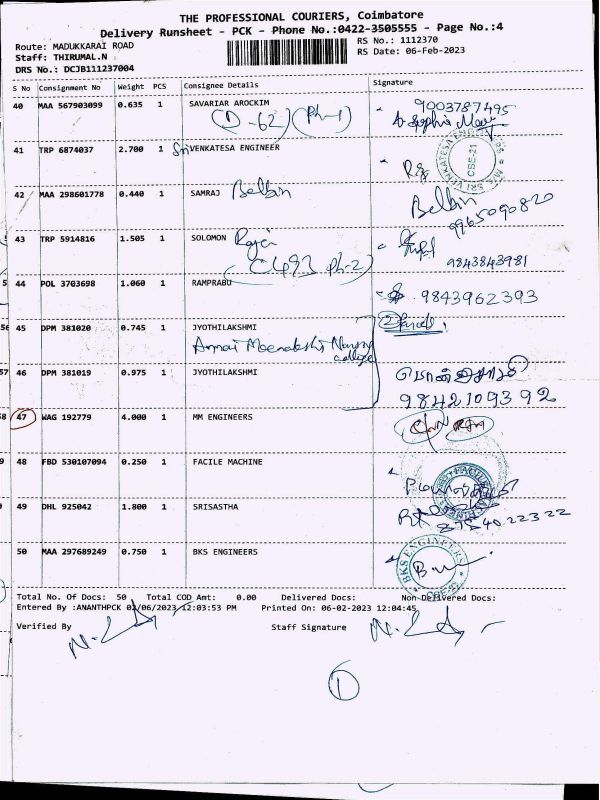 THE PROFESSIONAL COURIERS, Coimbatore
Delivery Runsheet - PCK - Phone No.:0422-3505555 - Page No.:4
Route: MADUKKARAI ROAD
RS No.: 1112370
Staff: THIRUMAL.N
RS Date: 06-Feb-2023
DRS No.: DCJB111237004
S No Consignment No Weight PCS Consignee Details Signature
40 MAA 567903099 0.635 1 SAVARIAR AROCKIM 9003787495
(D-62) (Ph-1)
41 TRP 6874037 2.700 1 Sri VENKATESA ENGINEER
SRI VENKATESA CBE-21
42 MAA 298601778 0.440 1 SAMRAJ Belbin Belbin
9965090820
43 TRP 5914816 1.505 1 SOLOMON Raja
9843843981
C493 Ph-2)
44 POL 3703698 1.060 1 RAMPRABU 9843962393
56 45 DPM 381020 0.745 1 JYOTHILAKSHMI
Annai Meenakshi Nursing
college
57 46 DPM 381019 0.975 1 JYOTHILAKSHMI
9842109392
47 WAG 192779 4.000 1 MM ENGINEERS
48 FBD 530107094 0.250 1 FACILE MACHINE
49 DHL 925042 1.800 1 SRISASTHA
50 MAA 297689249 0.750 1 BKS ENGINEERS
BKS ENGINEERS
Total No. Of Docs: 50 Total COD Amt: 0.00 Delivered Docs: Non-Delivered Docs:
Entered By :ANANTHPCK 02/06/2023 12:03:53 PM Printed On: 06-02-2023 12:04:45
Verified By Staff Signature
1